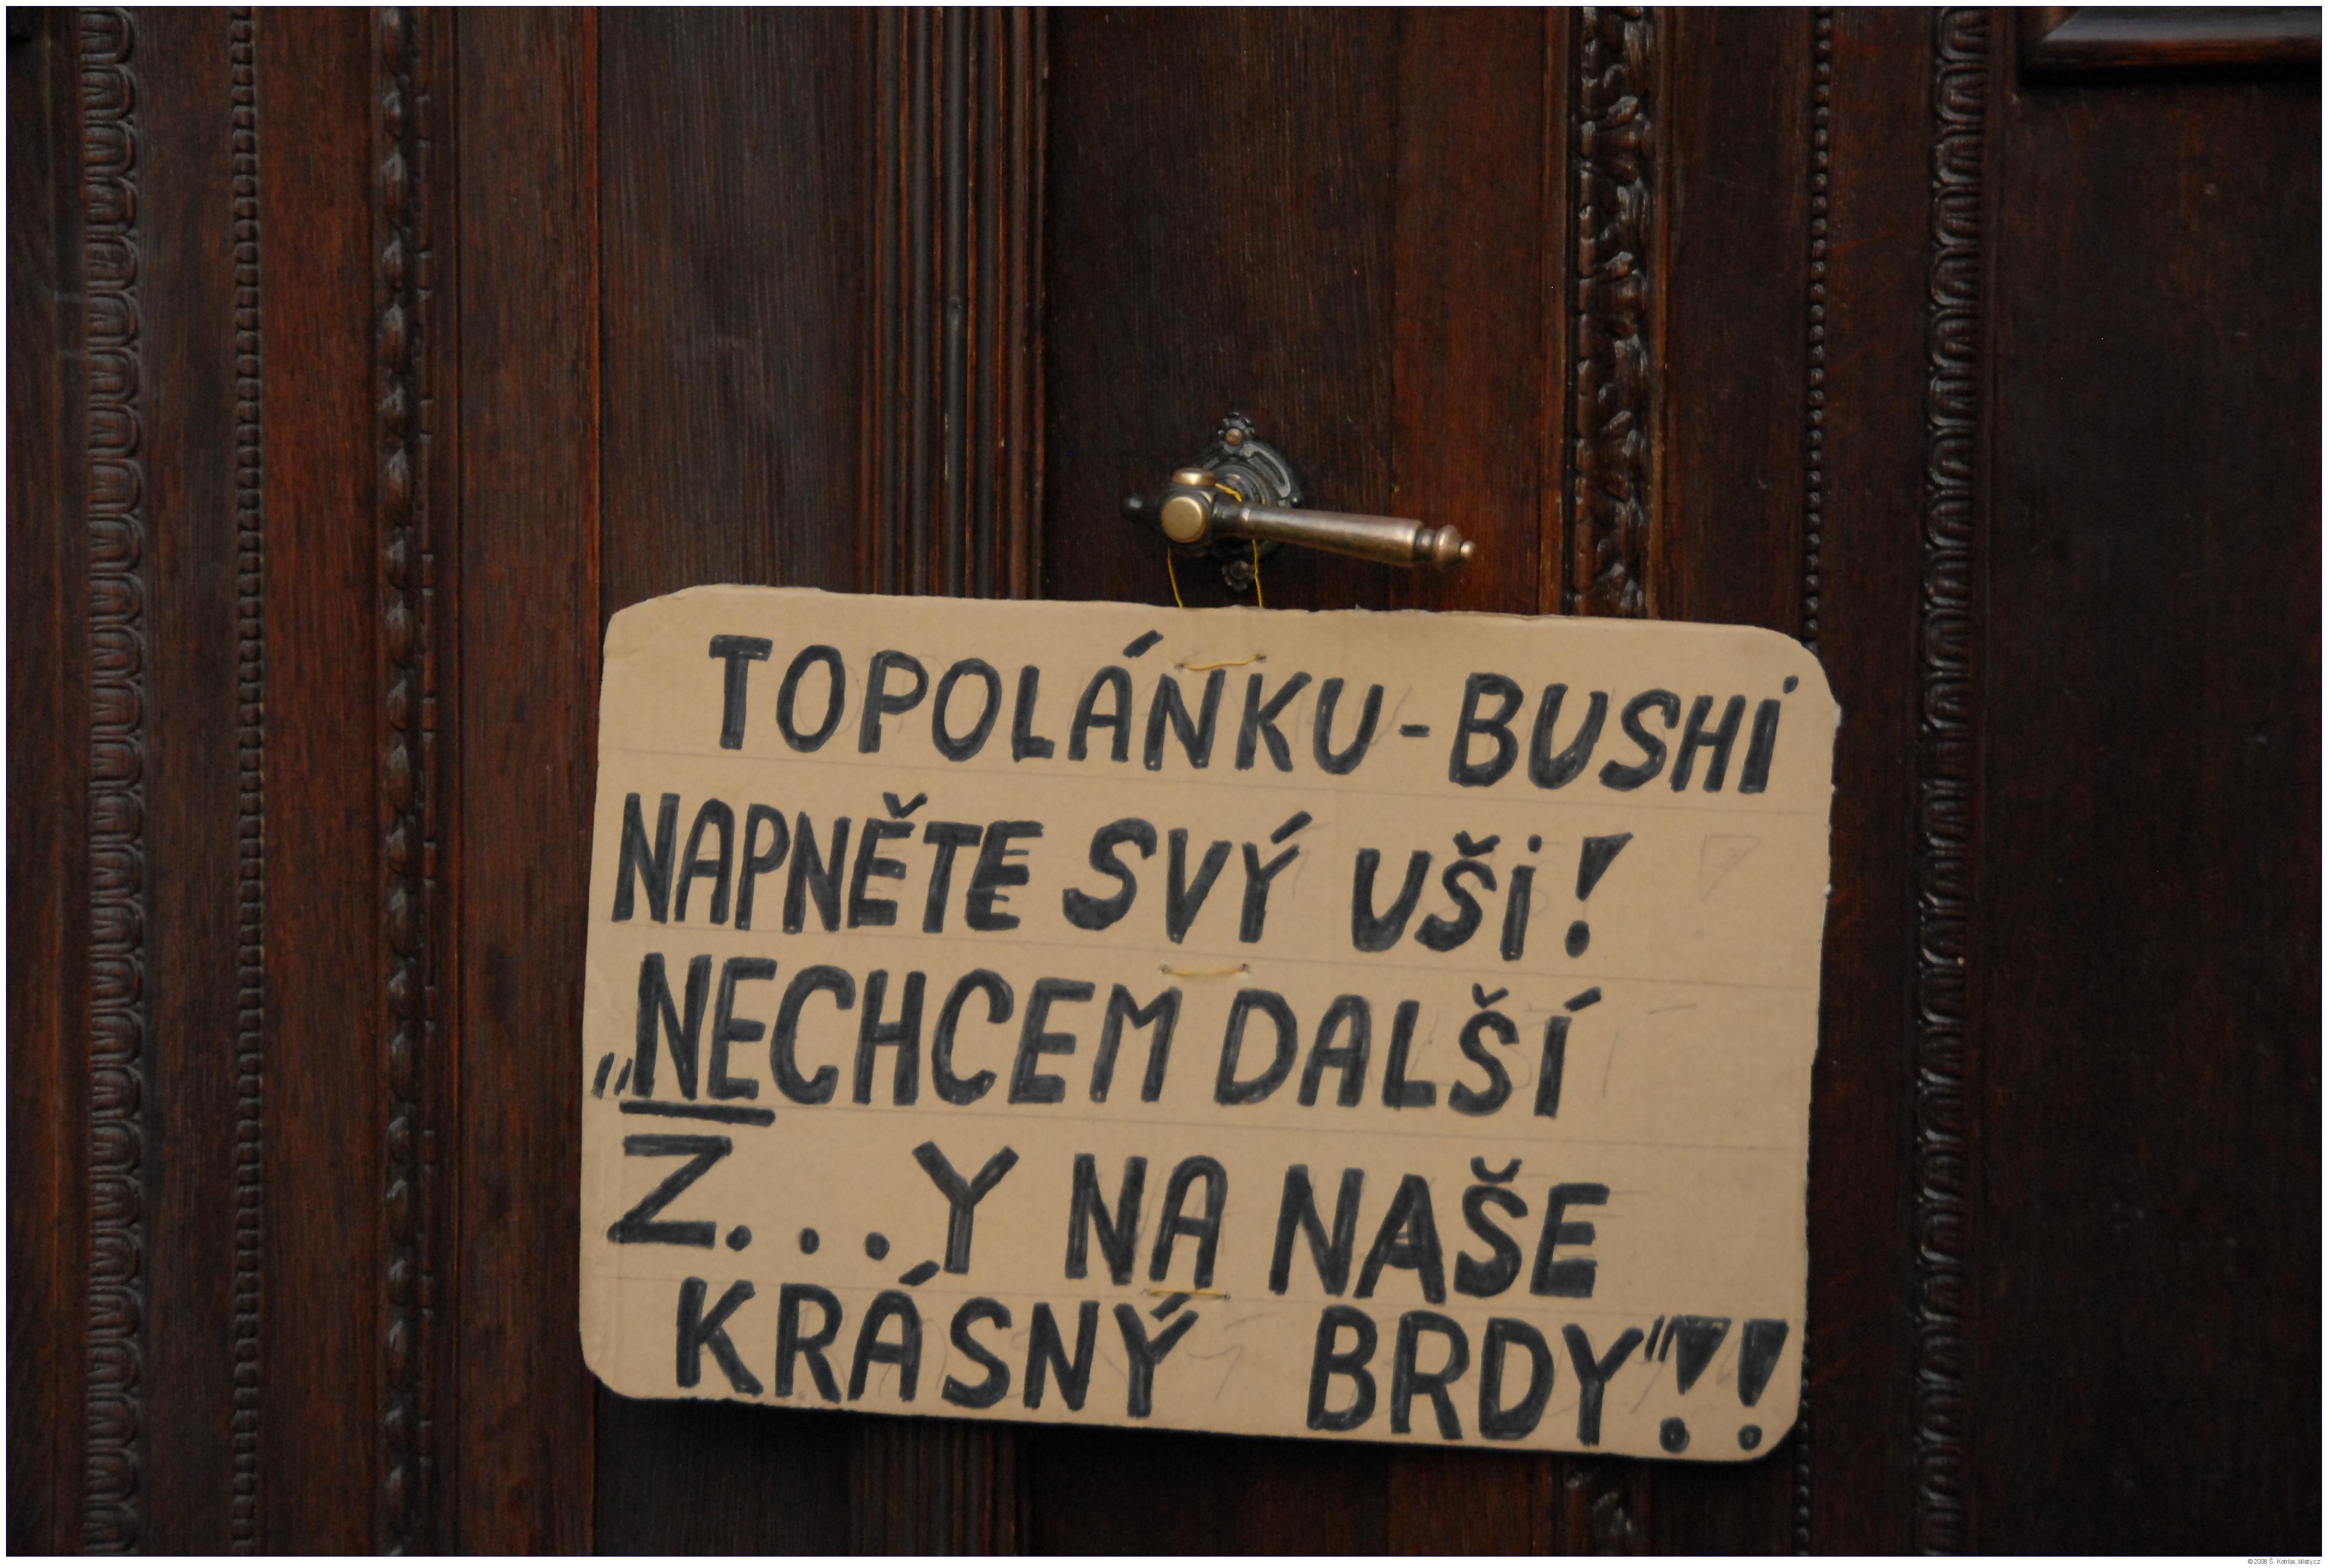 TOPOLÁNKU-BUSHI
NAPNĚTE SVÝ UŠI!
„NECHCEM DALŠÍ
Z...Y NA NAŠE
KRÁSNÝ BRDY"!!
© 2008 Š. Kotrba, blisty.cz